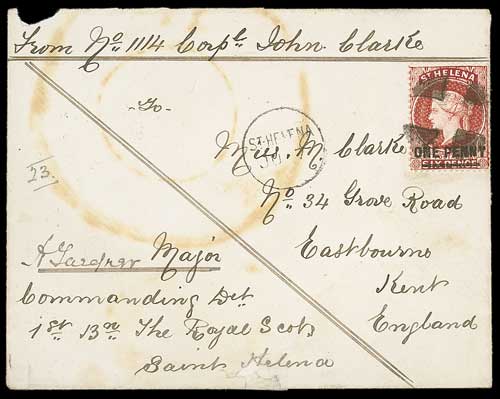 From No 1114 Corpl John Clarke
ST HELENA
ONE PENNY
SIX PENCE
To
ST. HELENA
Miss. M. Clarke
No 34 Grove Road
Eastbourne
Kent
England
23.
A Gardner Major
Commanding Det
1st Bn The Royal Scots
Saint Helena